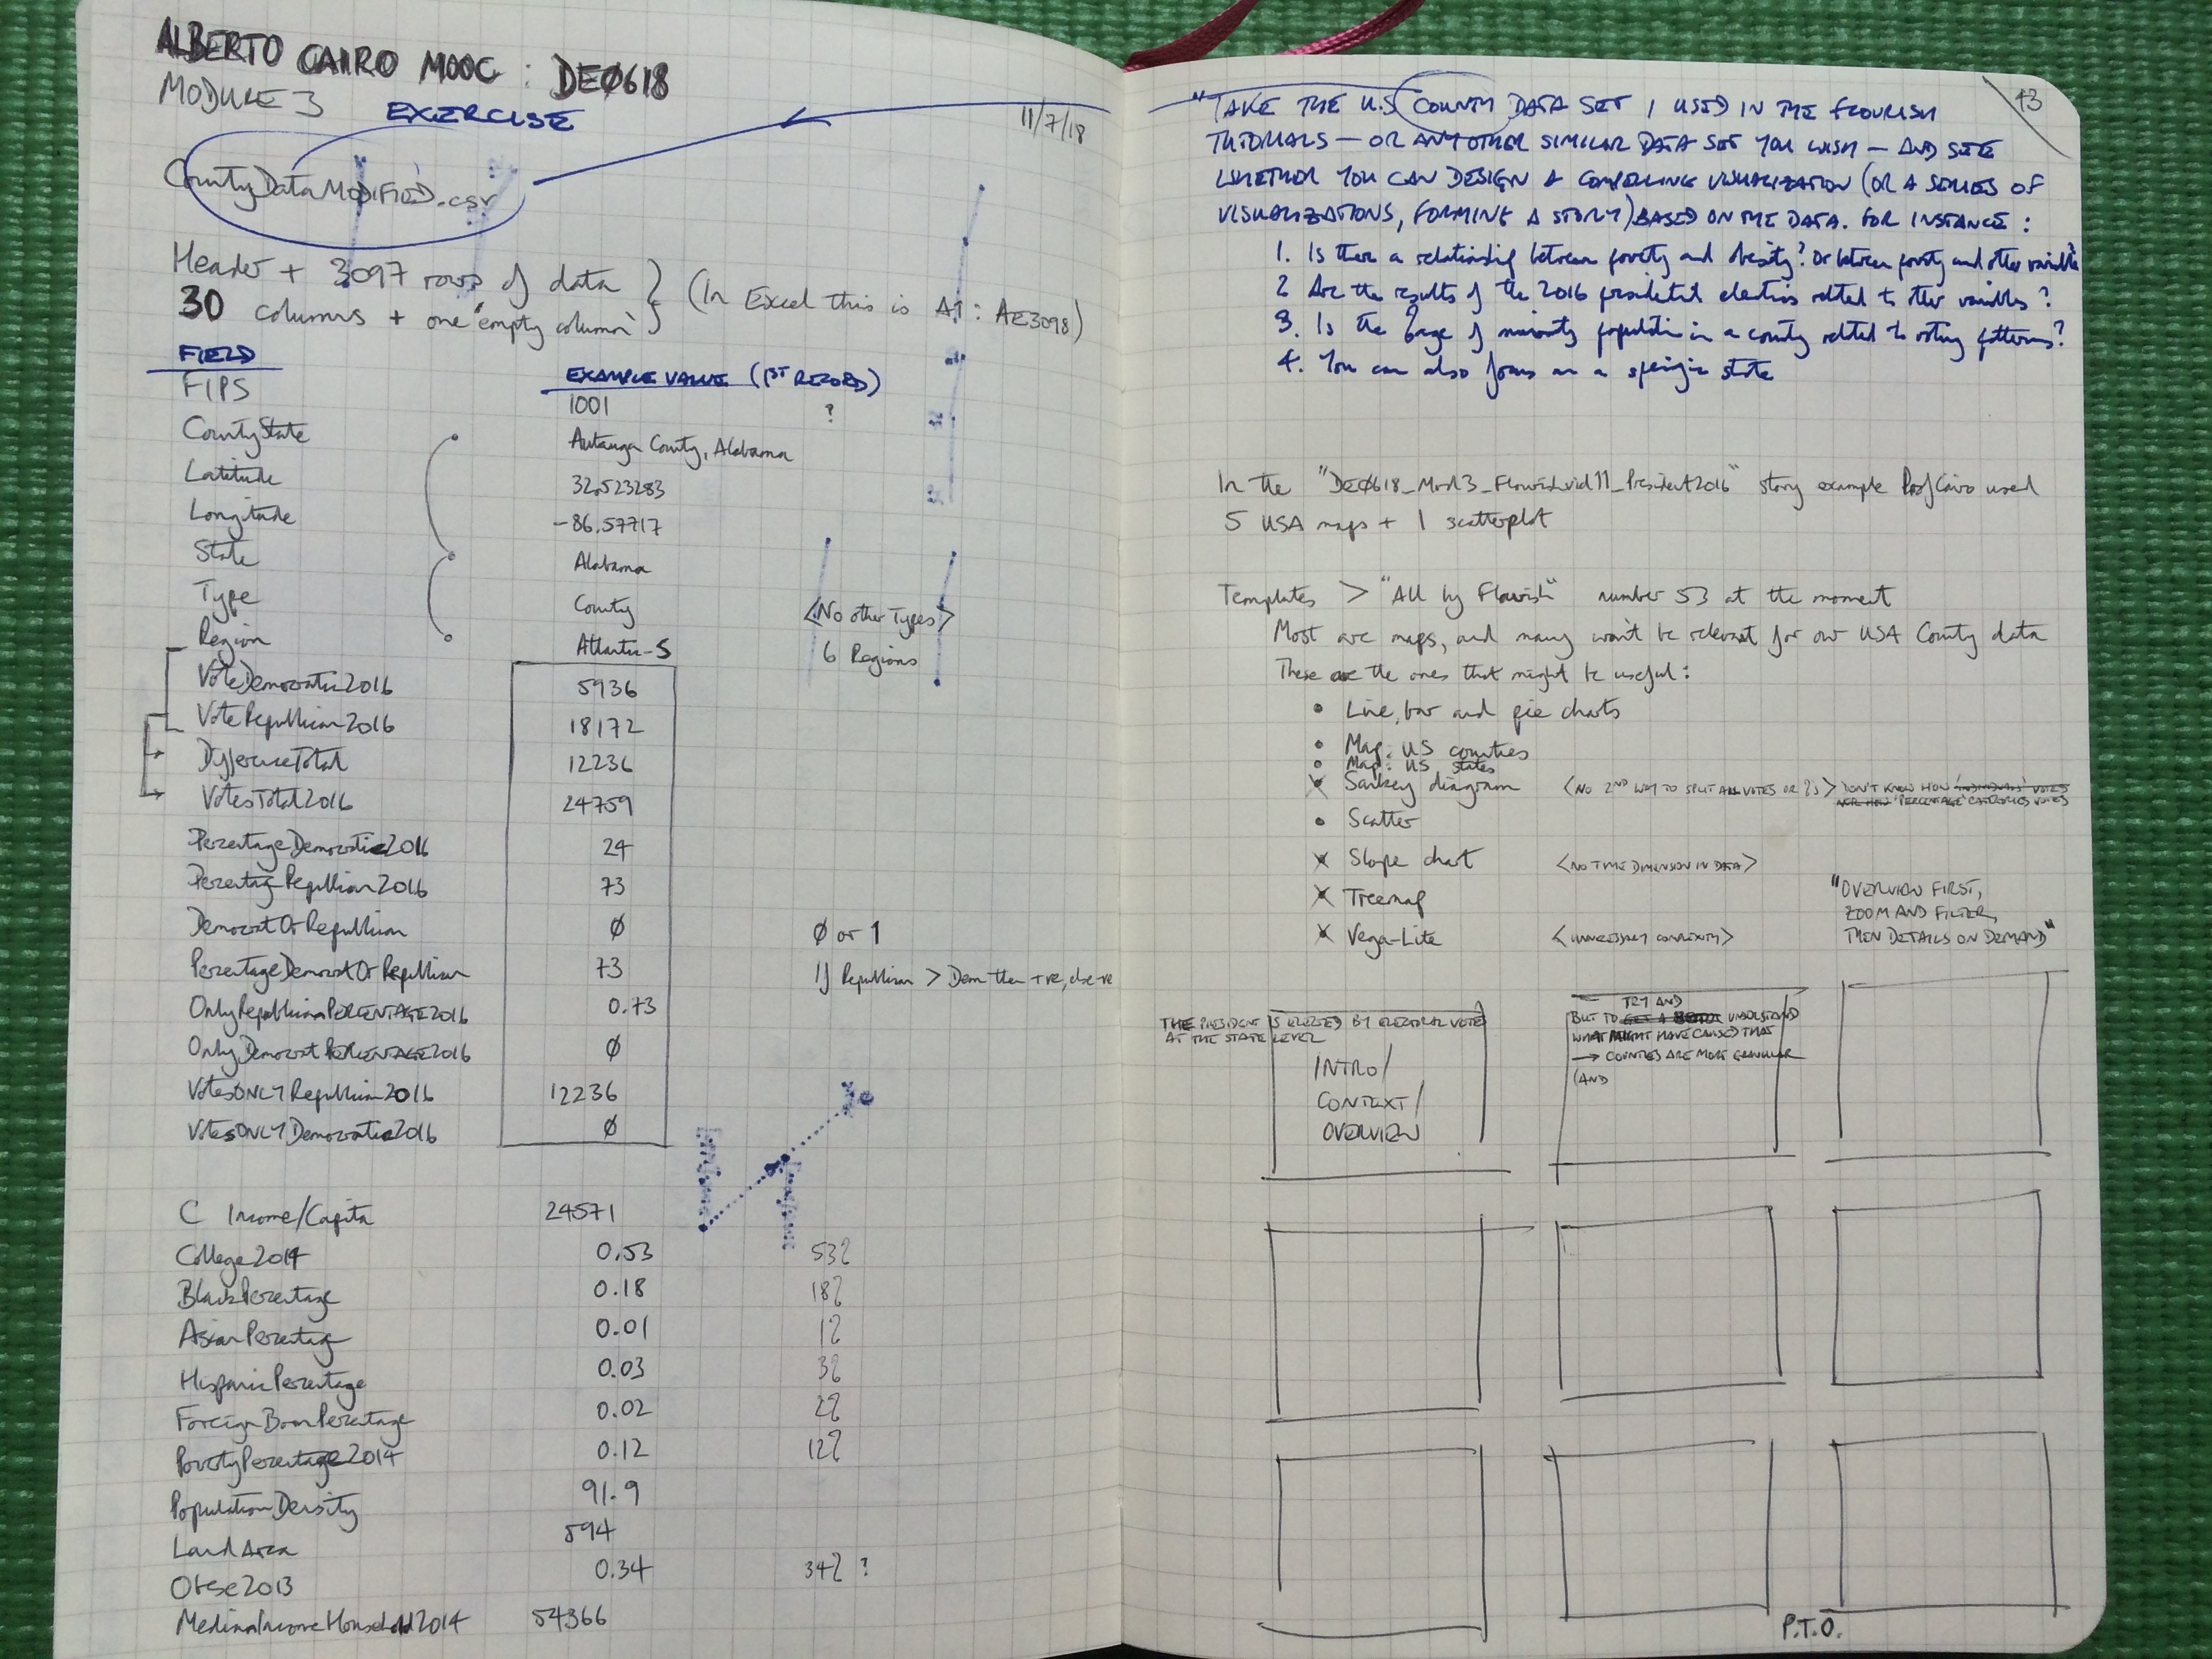 ALBERTO CAIRO MOOC : DEØ618
MODULE 3 EXERCISE 11/7/18
CountyDataMODIFIED.csv
Header + 3097 rows of data
30 columns + one "empty column"
(In Excel this is A1 : AE3098)
FIELD EXAMPLE VALUE (1ST RECORD)
FIPS 1001 ?
CountyState Autauga County, Alabama
Latitude 32.523283
Longitude -86.57717
State Alabama
Type County <No other Types>
Region Atlantic-S 6 Regions
VoteDemocratic2016 5936
VoteRepublican2016 18172
DifferenceTotal 12236
VotesTotal2016 24759
PercentageDemocratic2016 24
PercentageRepublican2016 73
DemocratOrRepublican Ø Ø or 1
PercentageDemocratOrRepublican 73 If Republican > Dem then +ve, else -ve
OnlyRepublicanPERCENTAGE2016 0.73
OnlyDemocratPERCENTAGE2016 Ø
VotesONLYRepublican2016 12236
VotesONLYDemocratic2016 Ø
C Income/Capita 24571
College2014 0.53 53%
BlackPercentage 0.18 18%
AsianPercentage 0.01 1%
HispanicPercentage 0.03 3%
ForeignBornPercentage 0.02 2%
PovertyPercentage2014 0.12 12%
PopulationDensity 91.9
LandArea 594
Obese2013 0.34 34% ?
MedianIncomeHousehold2014 54366
43
"TAKE THE U.S COUNTY DATA SET I USED IN THE FLOURISH
TUTORIALS — OR ANY OTHER SIMILAR DATA SET YOU WISH — AND SEE
WHETHER YOU CAN DESIGN A COMPELLING VISUALIZATION (OR A SERIES OF
VISUALIZATIONS, FORMING A STORY) BASED ON THE DATA. FOR INSTANCE :
1. Is there a relationship between poverty and obesity? Or between poverty and other variables
2 Are the results of the 2016 presidential election related to other variables ?
3. Is the %age of minority population in a county related to voting patterns?
4. You can also focus on a specific state
In the "DEØ618_Mod3_Flourishvid11_President2016" story example Prof Cairo used
5 USA maps + 1 scatterplot
Templates > "All by Flourish" number 53 at the moment
Most are maps, and many won't be relevant for our USA County data
These are the ones that might be useful :
• Line, bar and pie charts
• Map: US counties
• Map: US states
x Sankey diagram <NO 2ND WAY TO SPLIT ALL VOTES OR %s> DON'T KNOW HOW 'INDIVIDUALS' VOTES
NOR HOW 'PERCENTAGE' CATEGORIES VOTES
• Scatter
x Slope chart <NO TIME DIMENSION IN DATA>
x Treemap
x Vega-Lite <UNNECESSARY COMPLEXITY>
"OVERVIEW FIRST,
ZOOM AND FILTER,
THEN DETAILS ON DEMAND"
THE PRESIDENT IS ELECTED BY ELECTORAL VOTES
AT THE STATE LEVEL
INTRO/
CONTEXT/
OVERVIEW
TRY AND
BUT TO GET A BETTER UNDERSTAND
WHAT MIGHT HAVE CAUSED THAT
→ COUNTIES ARE MORE GRANULAR
(AND
P.T.O.